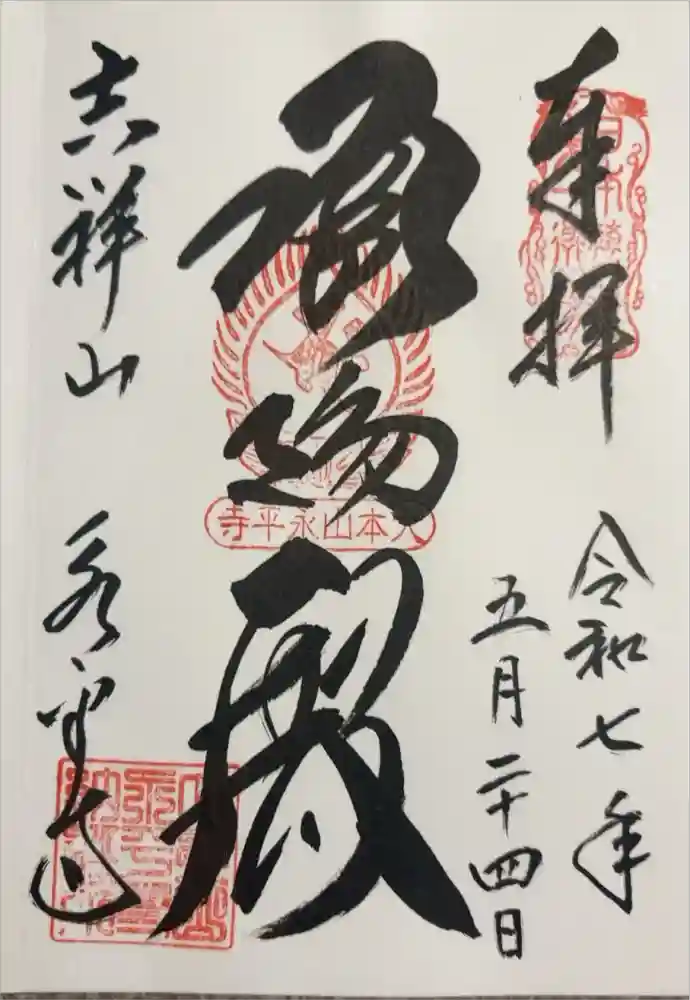 奉拝
令和七年
五月二十四日
承陽殿
大本山永平寺
吉祥山 永平寺